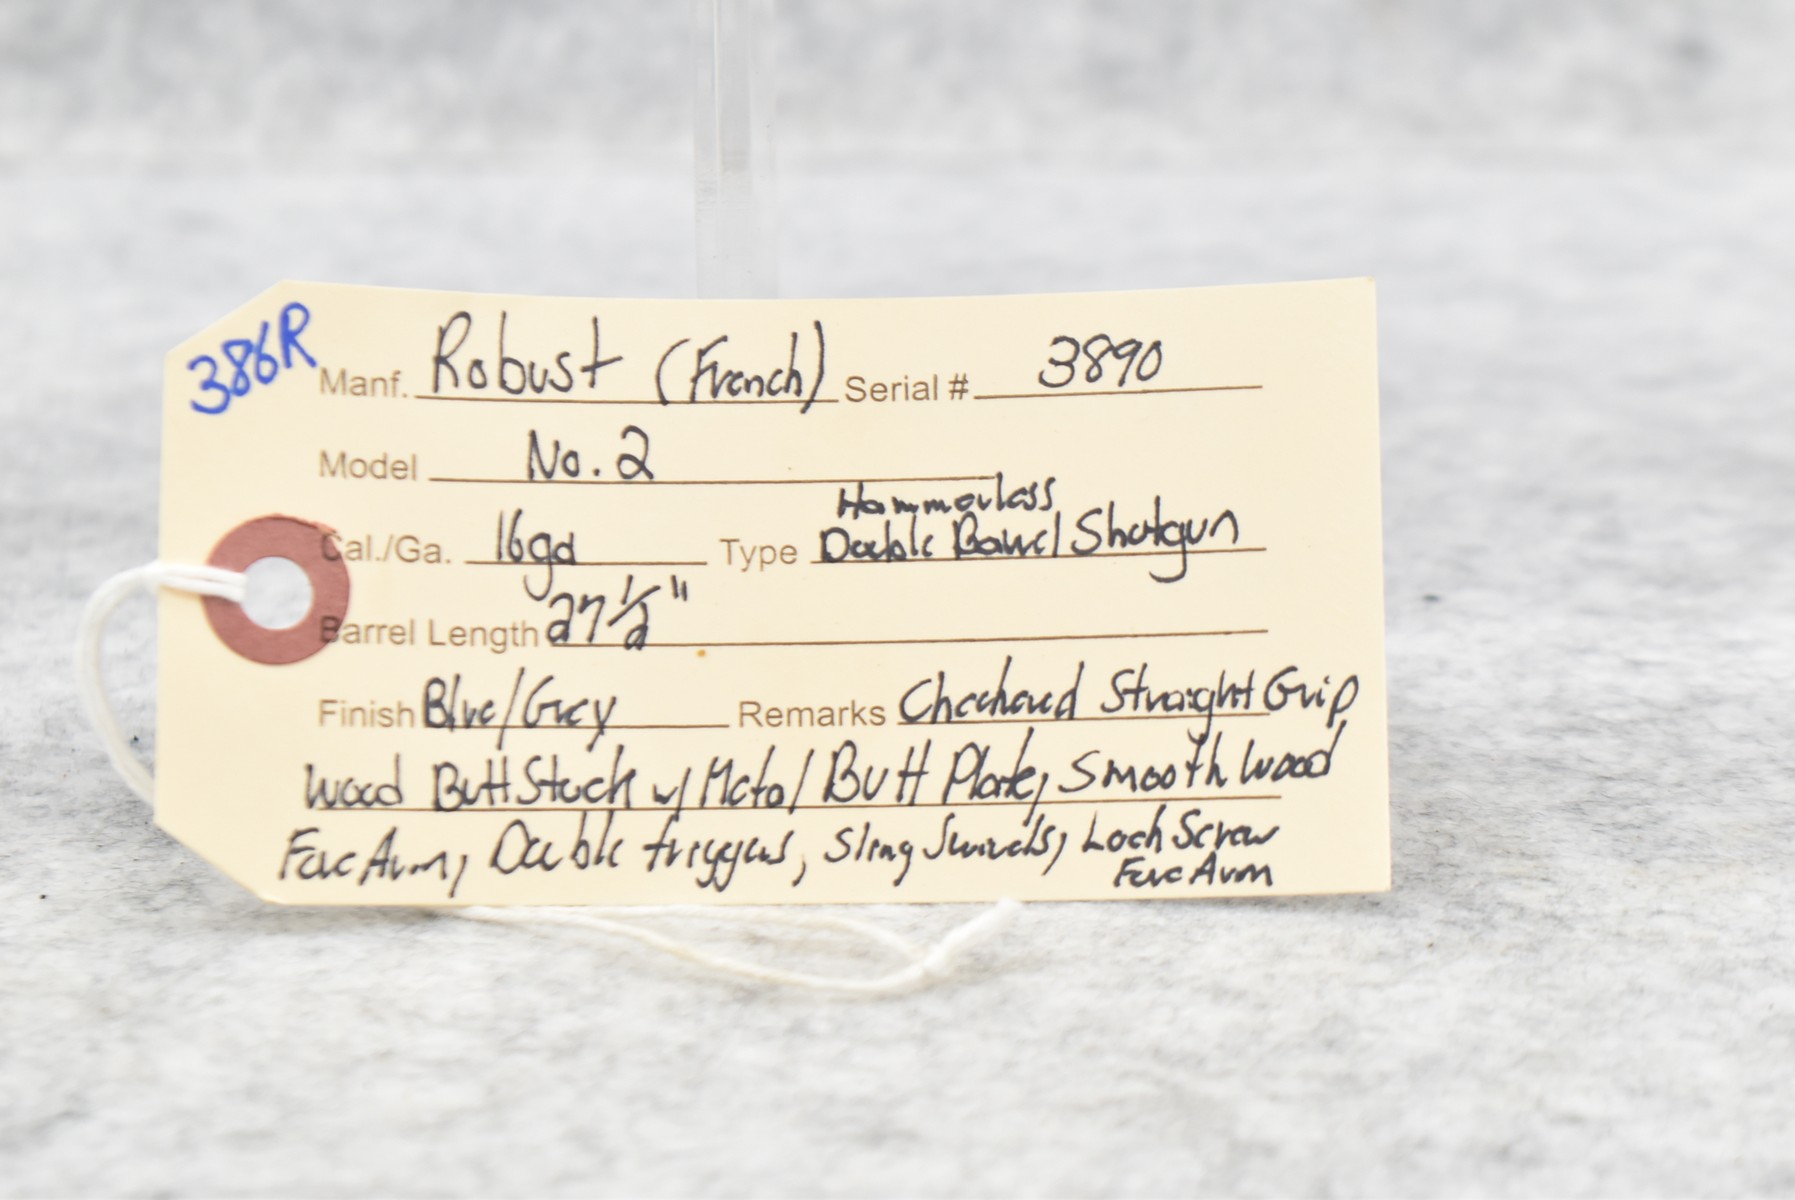 386R
Manf. Robust (French) Serial # 3890
Model No. 2
Cal./Ga. 16ga Type Hammerless Double Barrel Shotgun
Barrel Length 27 1/2"
Finish Blue/Grey Remarks Checkered Straight Grip
Wood Butt Stock w/ Metal Butt Plate, Smooth Wood
ForeArm, Double triggers, Sling Swivels, Lock Screw
ForeArm